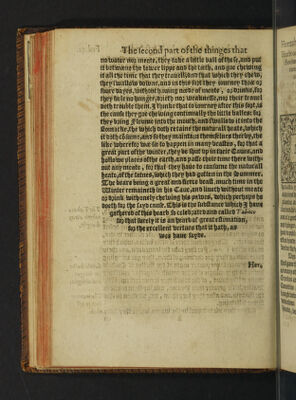 The second part of the thinges that
no water nor meate, they take a little ball of these, and put
it betweene the lower lippe and the teeth, and goe chewing
it all the time that they travell, and that which they chew,
they swallow downe, and in this sort they journey three or
foure dayes, without having neede of meate, or drinke, for
they feele no hunger, drieth nor weaknesse, nor their travel
doth trouble them. I thinke that to journey after this sort, is
the cause they goe chewing continually the little balles: for
they bring Fleume into the mouth, and swallow it into the
stomacke, the which doth retaine the naturall heate, which
it doth consume, and so they maintaine themselves therby, the
like whereof we see to happen in many beastes, for that a
great part of the winter, they be shut up in their Caves, and
hollowe places of the earth, and passe their time there with-
out any meate, for that they have to consume the naturall
heate, of the fatnes, which they had gotten in the Summer.
The Beare being a great and fierce beast, much time in the
Winter remaineth in his Cave, and liveth without meate
or drink without chewing his pawes, which perhaps he
doth for the sayd cause. This is the substance which I have
gathered of this hearb so celebrated and called Tabaco
for that surely it is an hearb of great estimation,
for the excellent vertues that it hath, as
wee have sayde.
Her,